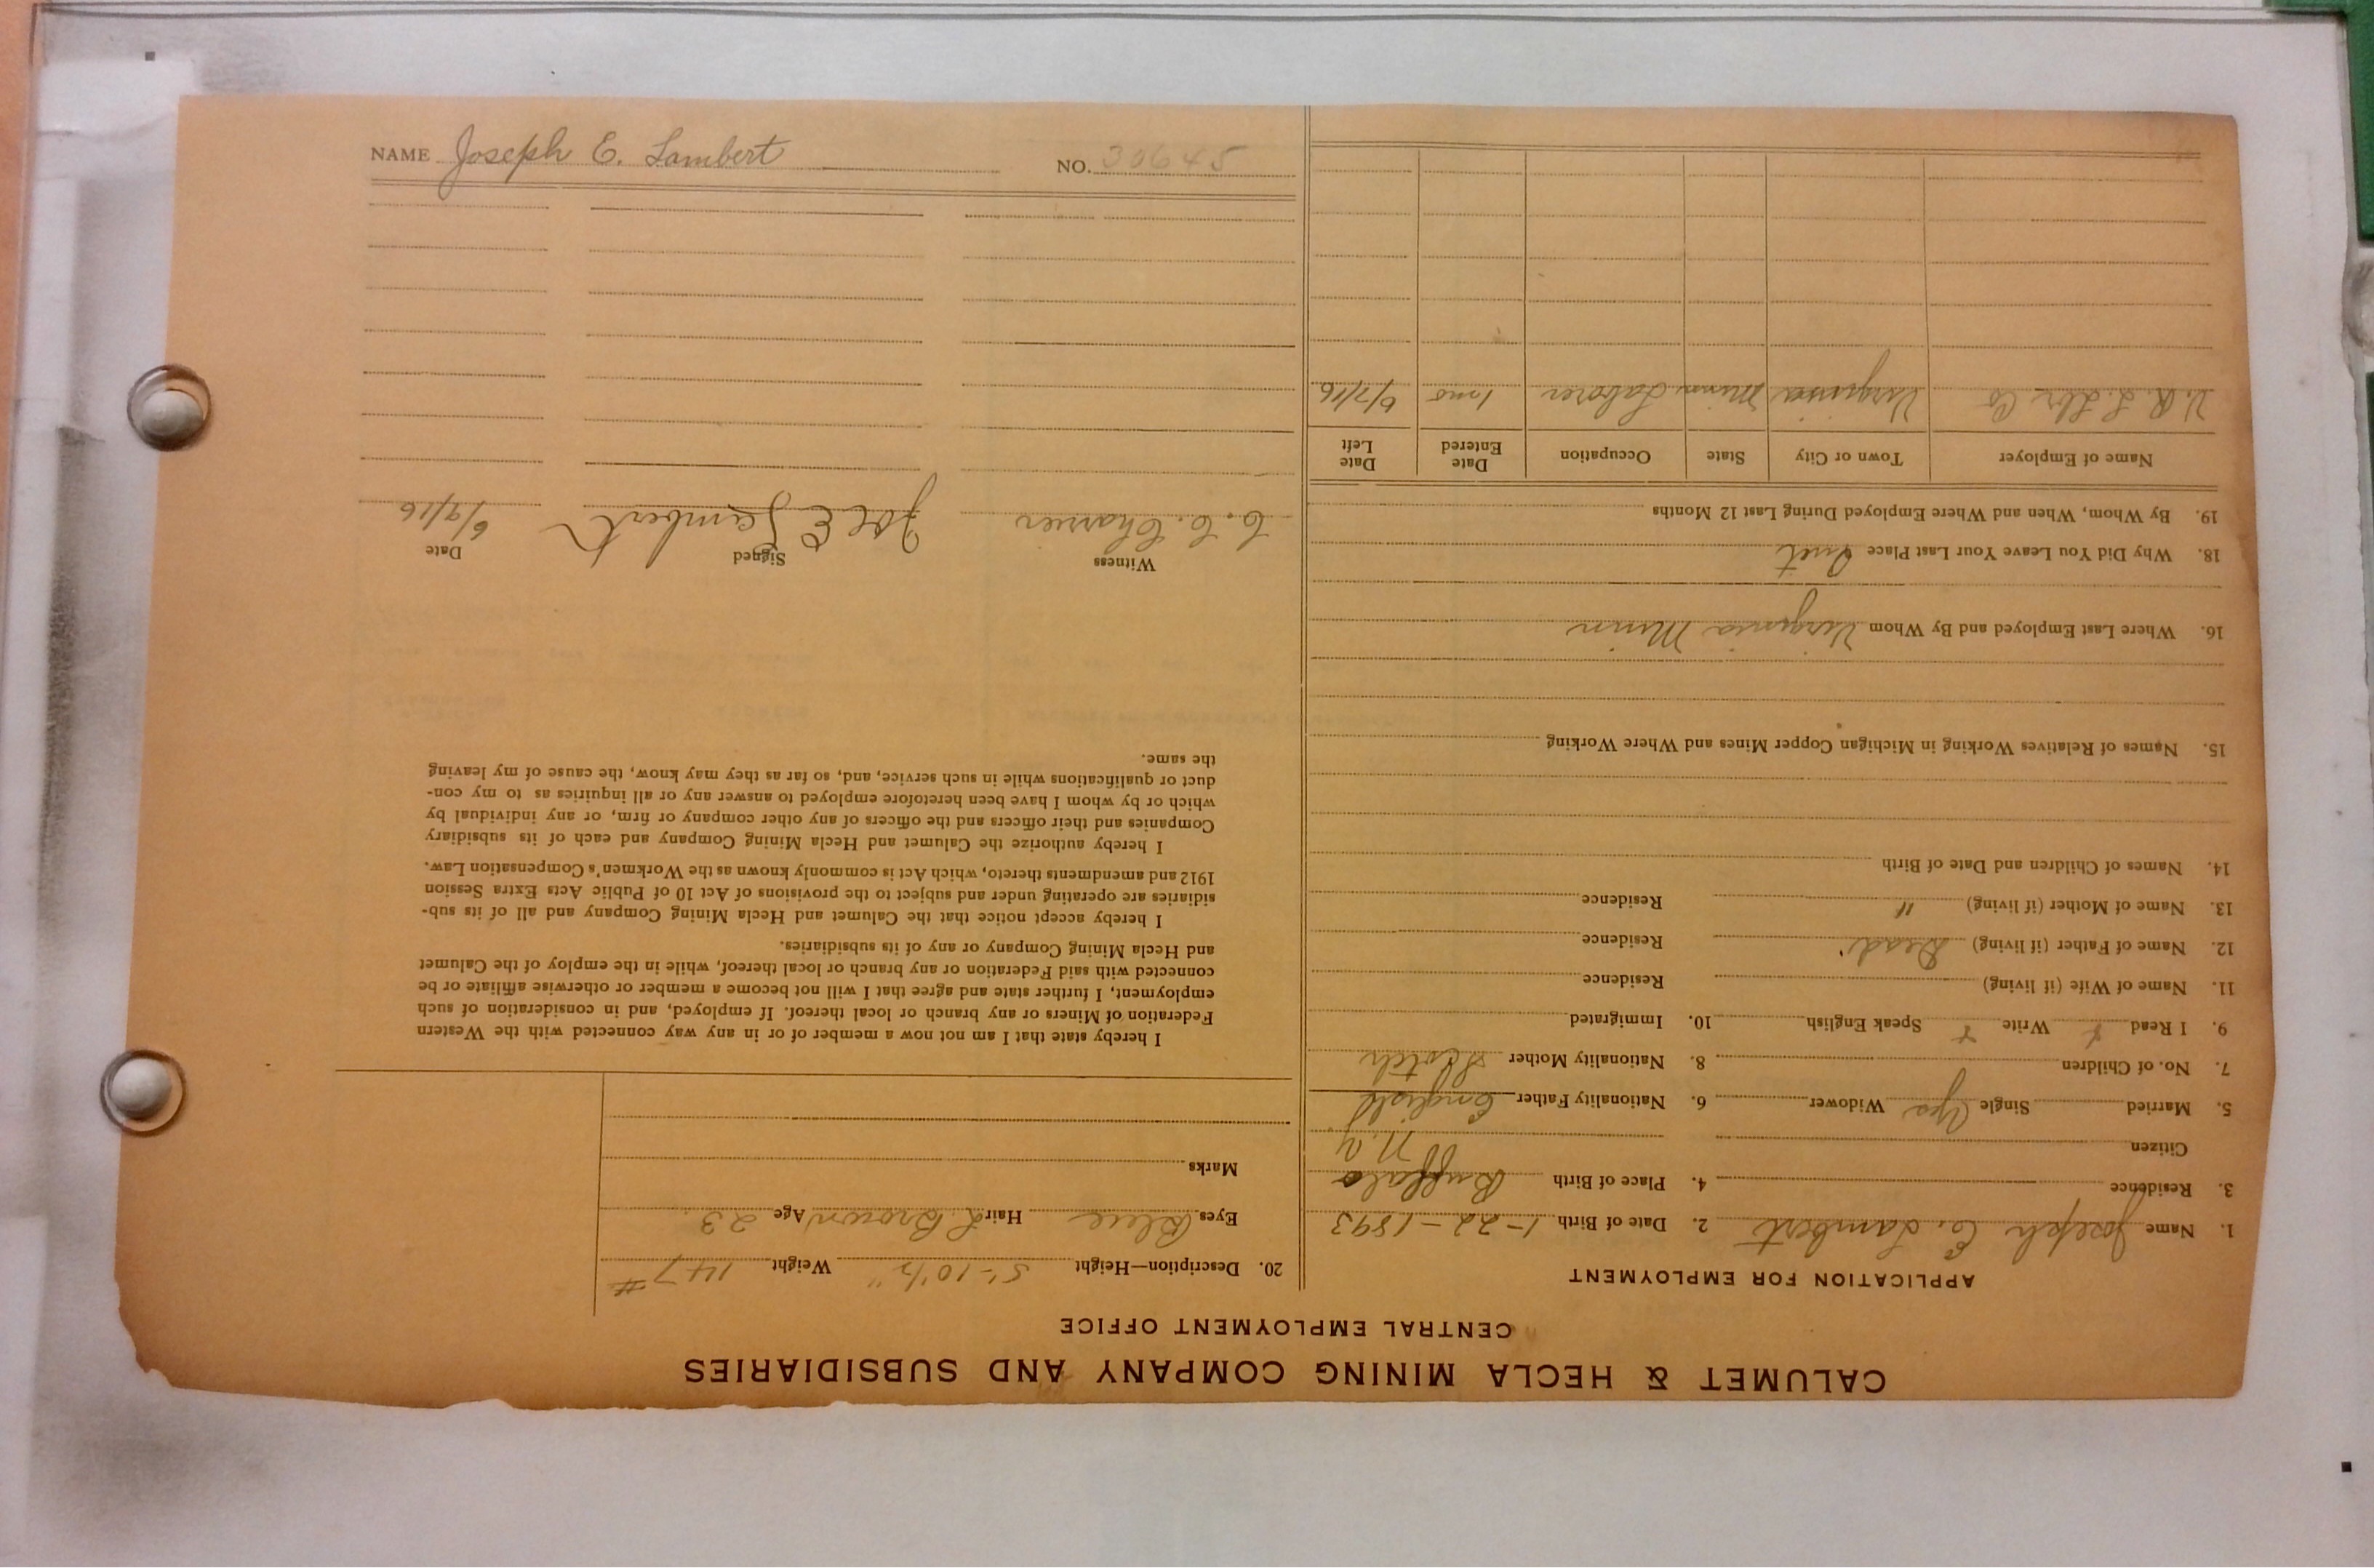 CALUMET & HECLA MINING COMPANY AND SUBSIDIARIES
CENTRAL EMPLOYMENT OFFICE
APPLICATION FOR EMPLOYMENT
1. Name Joseph E. Lambert 2. Date of Birth 1-22-1893
3. Residence 4. Place of Birth Buffalo
Citizen N.Y.
5. Married Single Yes Widower 6. Nationality Father English
7. No. of Children 8. Nationality Mother Scotch
9. I Read + Write + Speak English 10. Immigrated
11. Name of Wife (if living) Residence
12. Name of Father (if living) Dead Residence
13. Name of Mother (if living) " Residence
14. Names of Children and Date of Birth
15. Names of Relatives Working in Michigan Copper Mines and Where Working
16. Where Last Employed and By Whom Virginia Minn
18. Why Did You Leave Your Last Place Quit
19. By Whom, When and Where Employed During Last 12 Months
Name of Employer Town or City State Occupation Date Entered Date Left
V. R. L. Lbr Co Virginia Minn Laborer 1 mo 6/7/16
20. Description—Height 5'-10½" Weight 147#
Eyes Blue Hair L. Brown Age 23
Marks
I hereby state that I am not now a member of or in any way connected with the Western
Federation of Miners or any branch or local thereof. If employed, and in consideration of such
employment, I further state and agree that I will not become a member or otherwise affiliate or be
connected with said Federation or any branch or local thereof, while in the employ of the Calumet
and Hecla Mining Company or any of its subsidiaries.
I hereby accept notice that the Calumet and Hecla Mining Company and all of its sub-
sidiaries are operating under and subject to the provisions of Act 10 of Public Acts Extra Session
1912 and amendments thereto, which Act is commonly known as the Workmen's Compensation Law.
I hereby authorize the Calumet and Hecla Mining Company and each of its subsidiary
Companies and their officers and the officers of any other company or firm, or any individual by
which or by whom I have been heretofore employed to answer any or all inquiries as to my con-
duct or qualifications while in such service, and, so far as they may know, the cause of my leaving
the same.
Witness Signed Date
Joe E Lambert 6/9/16
NAME Joseph E. Lambert NO. 30645